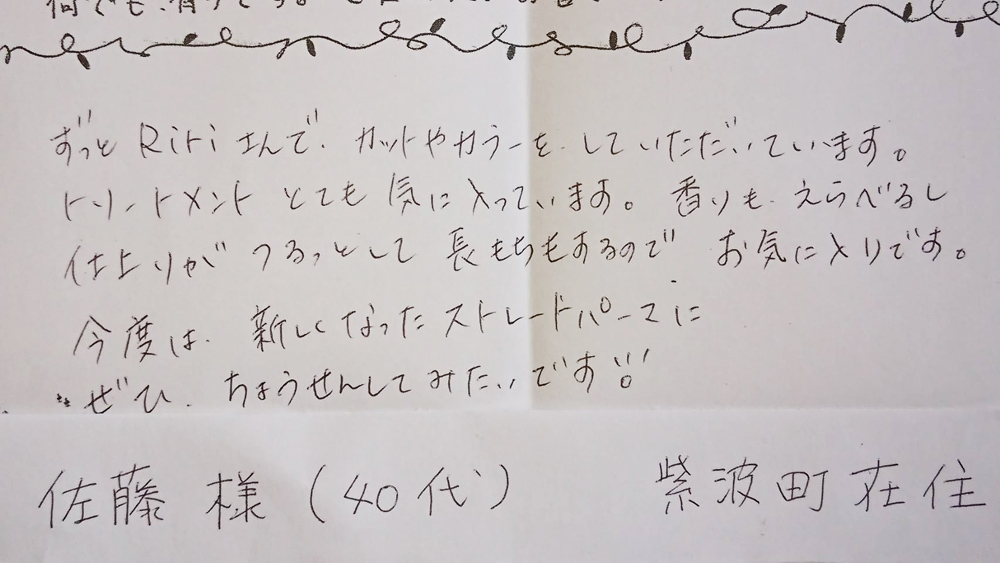 ずっと Ririさんで、カットやカラーを、していただいています。
トリートメント とても 気に入っています。香りも、えらべるし
仕上りが つるっとして 長もちもするので お気に入りです。
今度は、新しくなった ストレードパーマに
ぜひ、ちょうせんしてみたいです!!
佐藤 様 (40代) 紫波町 在住